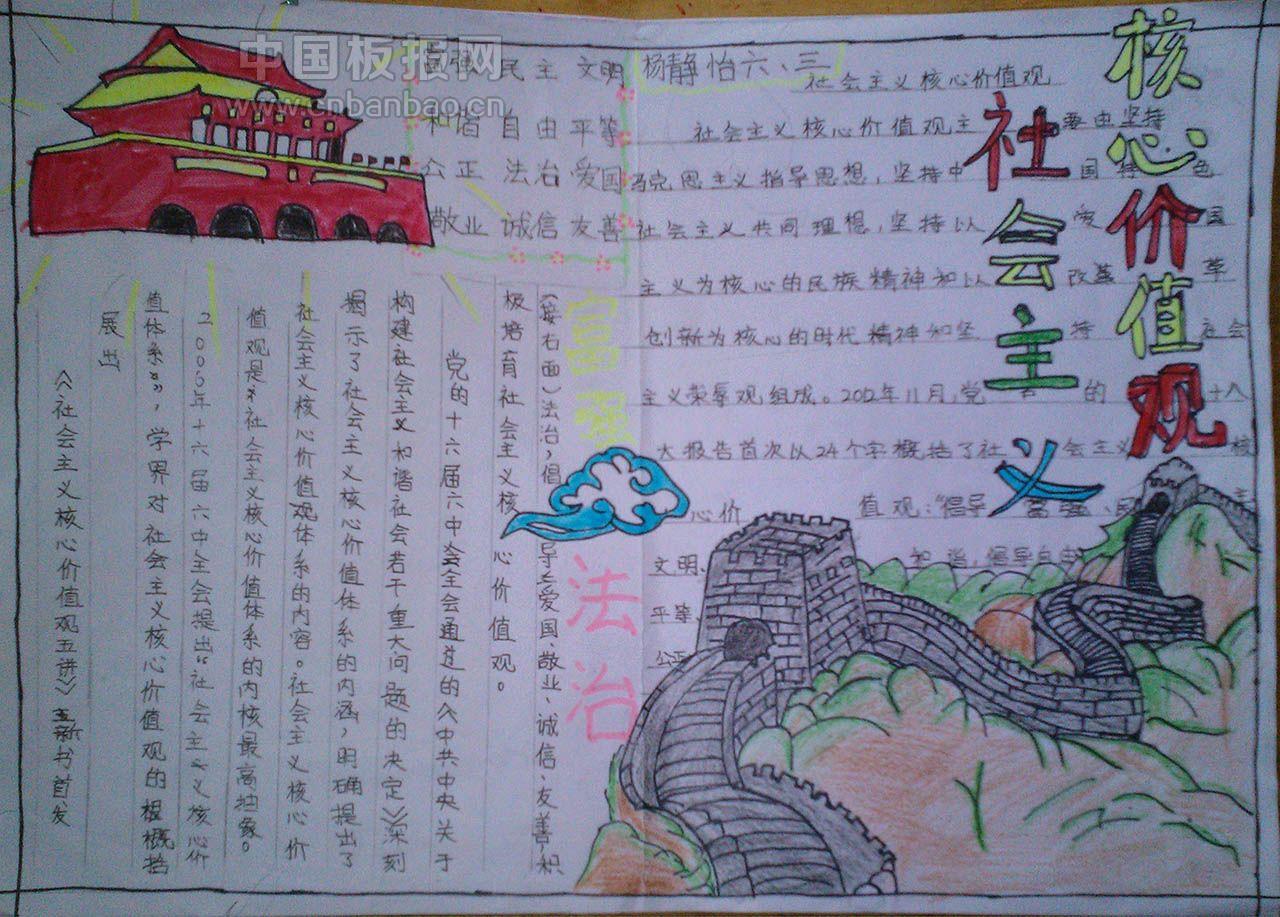 中国板报网
www.cnbanbao.cn
核心价值观
社会主义
富强 民主 文明
和谐 自由 平等
公正 法治 爱国
敬业 诚信 友善
杨静怡六、三
社会主义核心价值观
社会主义核心价值观主要由坚持
马克思主义指导思想，坚持中国特色
社会主义共同理想，坚持以爱国
主义为核心的民族精神和以改革
创新为核心的时代精神和坚持社会
主义荣辱观组成。2012年11月,党的十八
大报告首次以24个字概括了社会主义核
心价值观:“倡导富强、民主
文明、和谐，倡导自由
平等、
公正
富强
法治
(接右面)法治,倡导爱国、敬业、诚信、友善,积
极培育社会主义核心价值观。
党的十六届六中全会通过的《中共中央关于
构建社会主义和谐社会若干重大问题的决定》深刻
揭示了社会主义核心价值体系的内涵,明确提出了
社会主义核心价值观体系的内容。社会主义核心价
值观是社会主义核心价值体系的内核最高抽象。
2006年十六届六中全会提出“社会主义核心价
值体系”,学界对社会主义核心价值观的概括
展出
《社会主义核心价值观五讲》新书首发